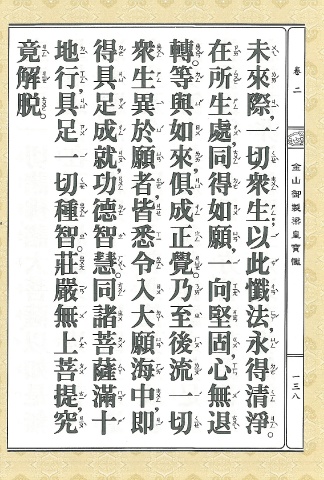 未來際，一切衆生，以此懺法，永得清淨。
在所生處，同得如願，一向堅固，心無退
轉。等與如來，俱成正覺。乃至後流一切
衆生，異於願者，皆悉令入大願海中，即
得具足成就，功德智慧。同諸菩薩，滿十
地行，具足一切種智。莊嚴無上菩提，究
竟解脫。
卷二
金山御製梁皇寶懺
一三八